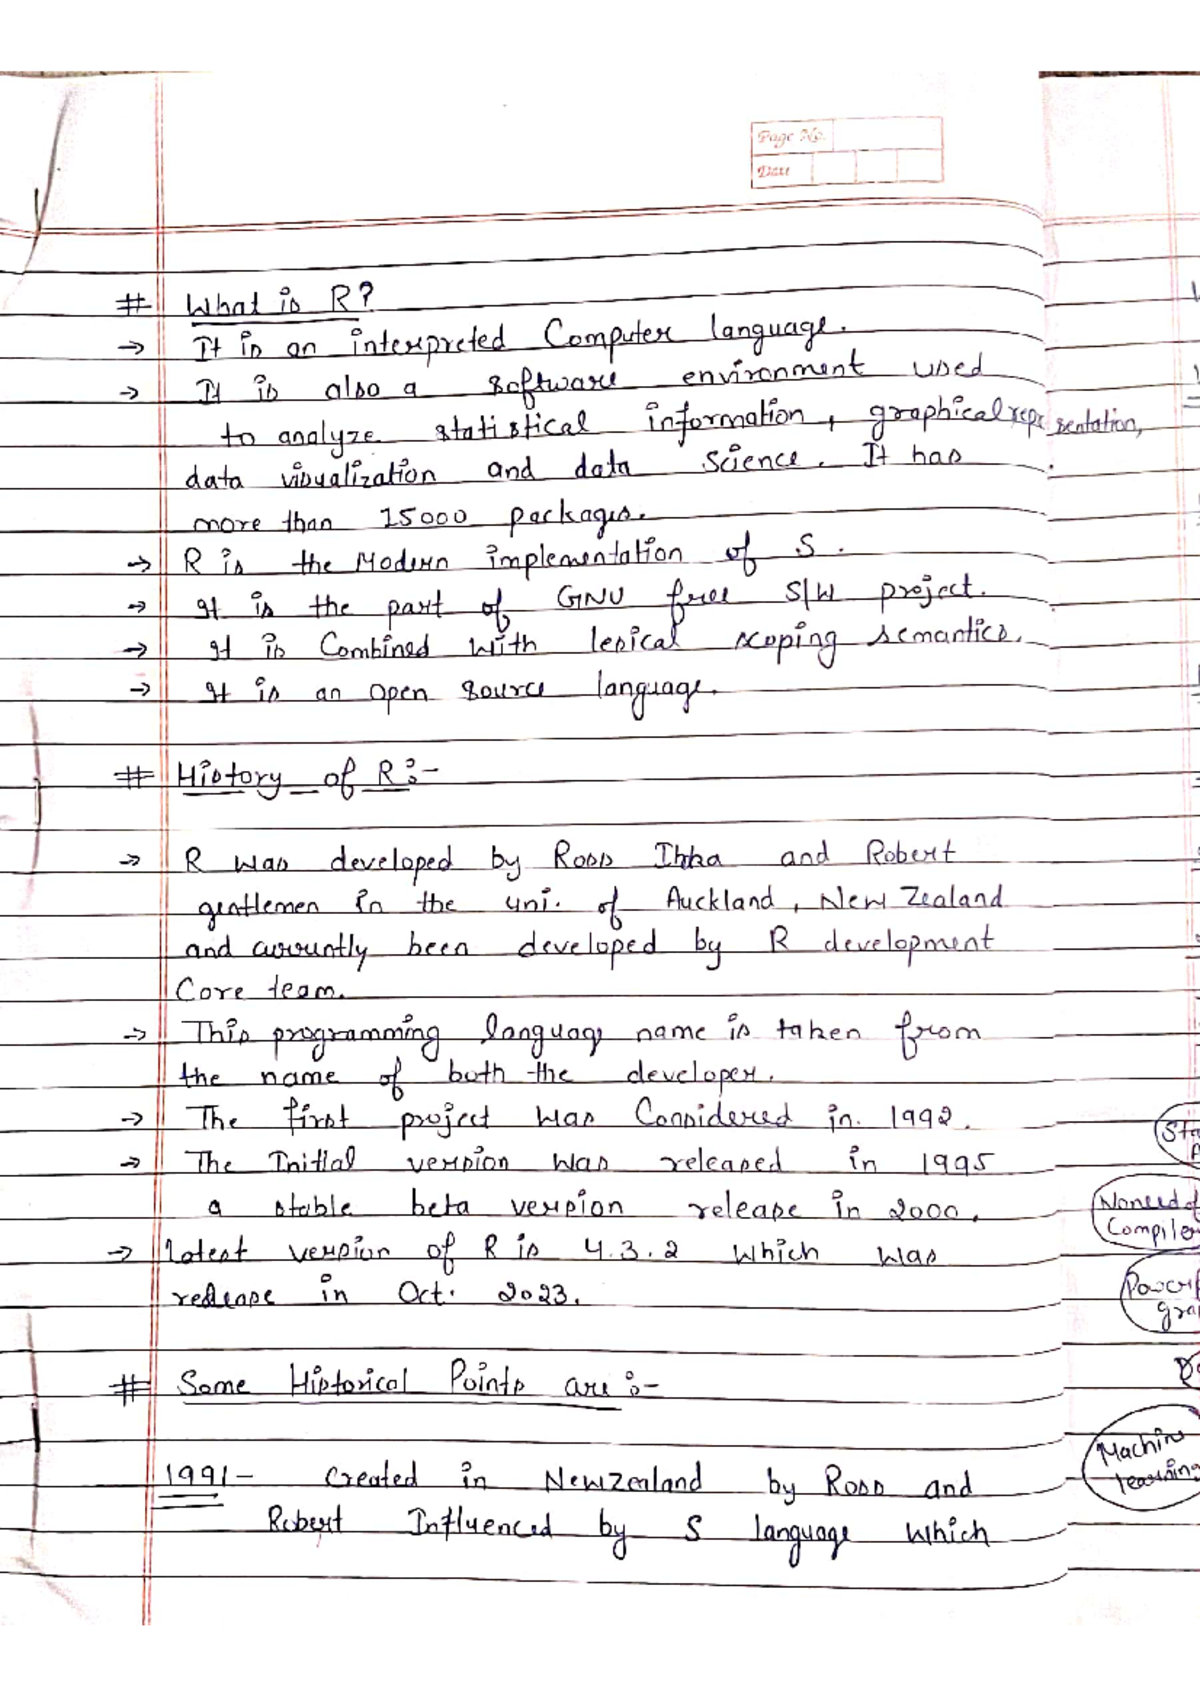 Page No.
Date
# What is R?
→ It is an interpreted Computer language.
→ It is also a software environment used
to analyze statistical information, graphical representation,
data visualization and data science. It has
more than 15000 packages.
→ R is the Modern implementation of S.
→ It is the part of GNU free S/W project.
→ It is Combined with lexical scoping semantics.
→ It is an open source language.
# History of R:-
→ R was developed by Ross Ihka and Robert
gentlemen in the uni. of Auckland, New Zealand
and curruntly been developed by R development
Core team.
→ This programming language name is taken from
the name of both the developer.
→ The first project was Considered in 1992.
→ The Initial version was released in 1995
a stable beta version release in 2000.
→ Latest version of R is 4.3.2 which was
release in Oct. 2023.
# Some Historical Points are :-
1991- Created in Newzealand by Ross and
Robert Influenced by S language which
No need of
Compiler
Machine
learning